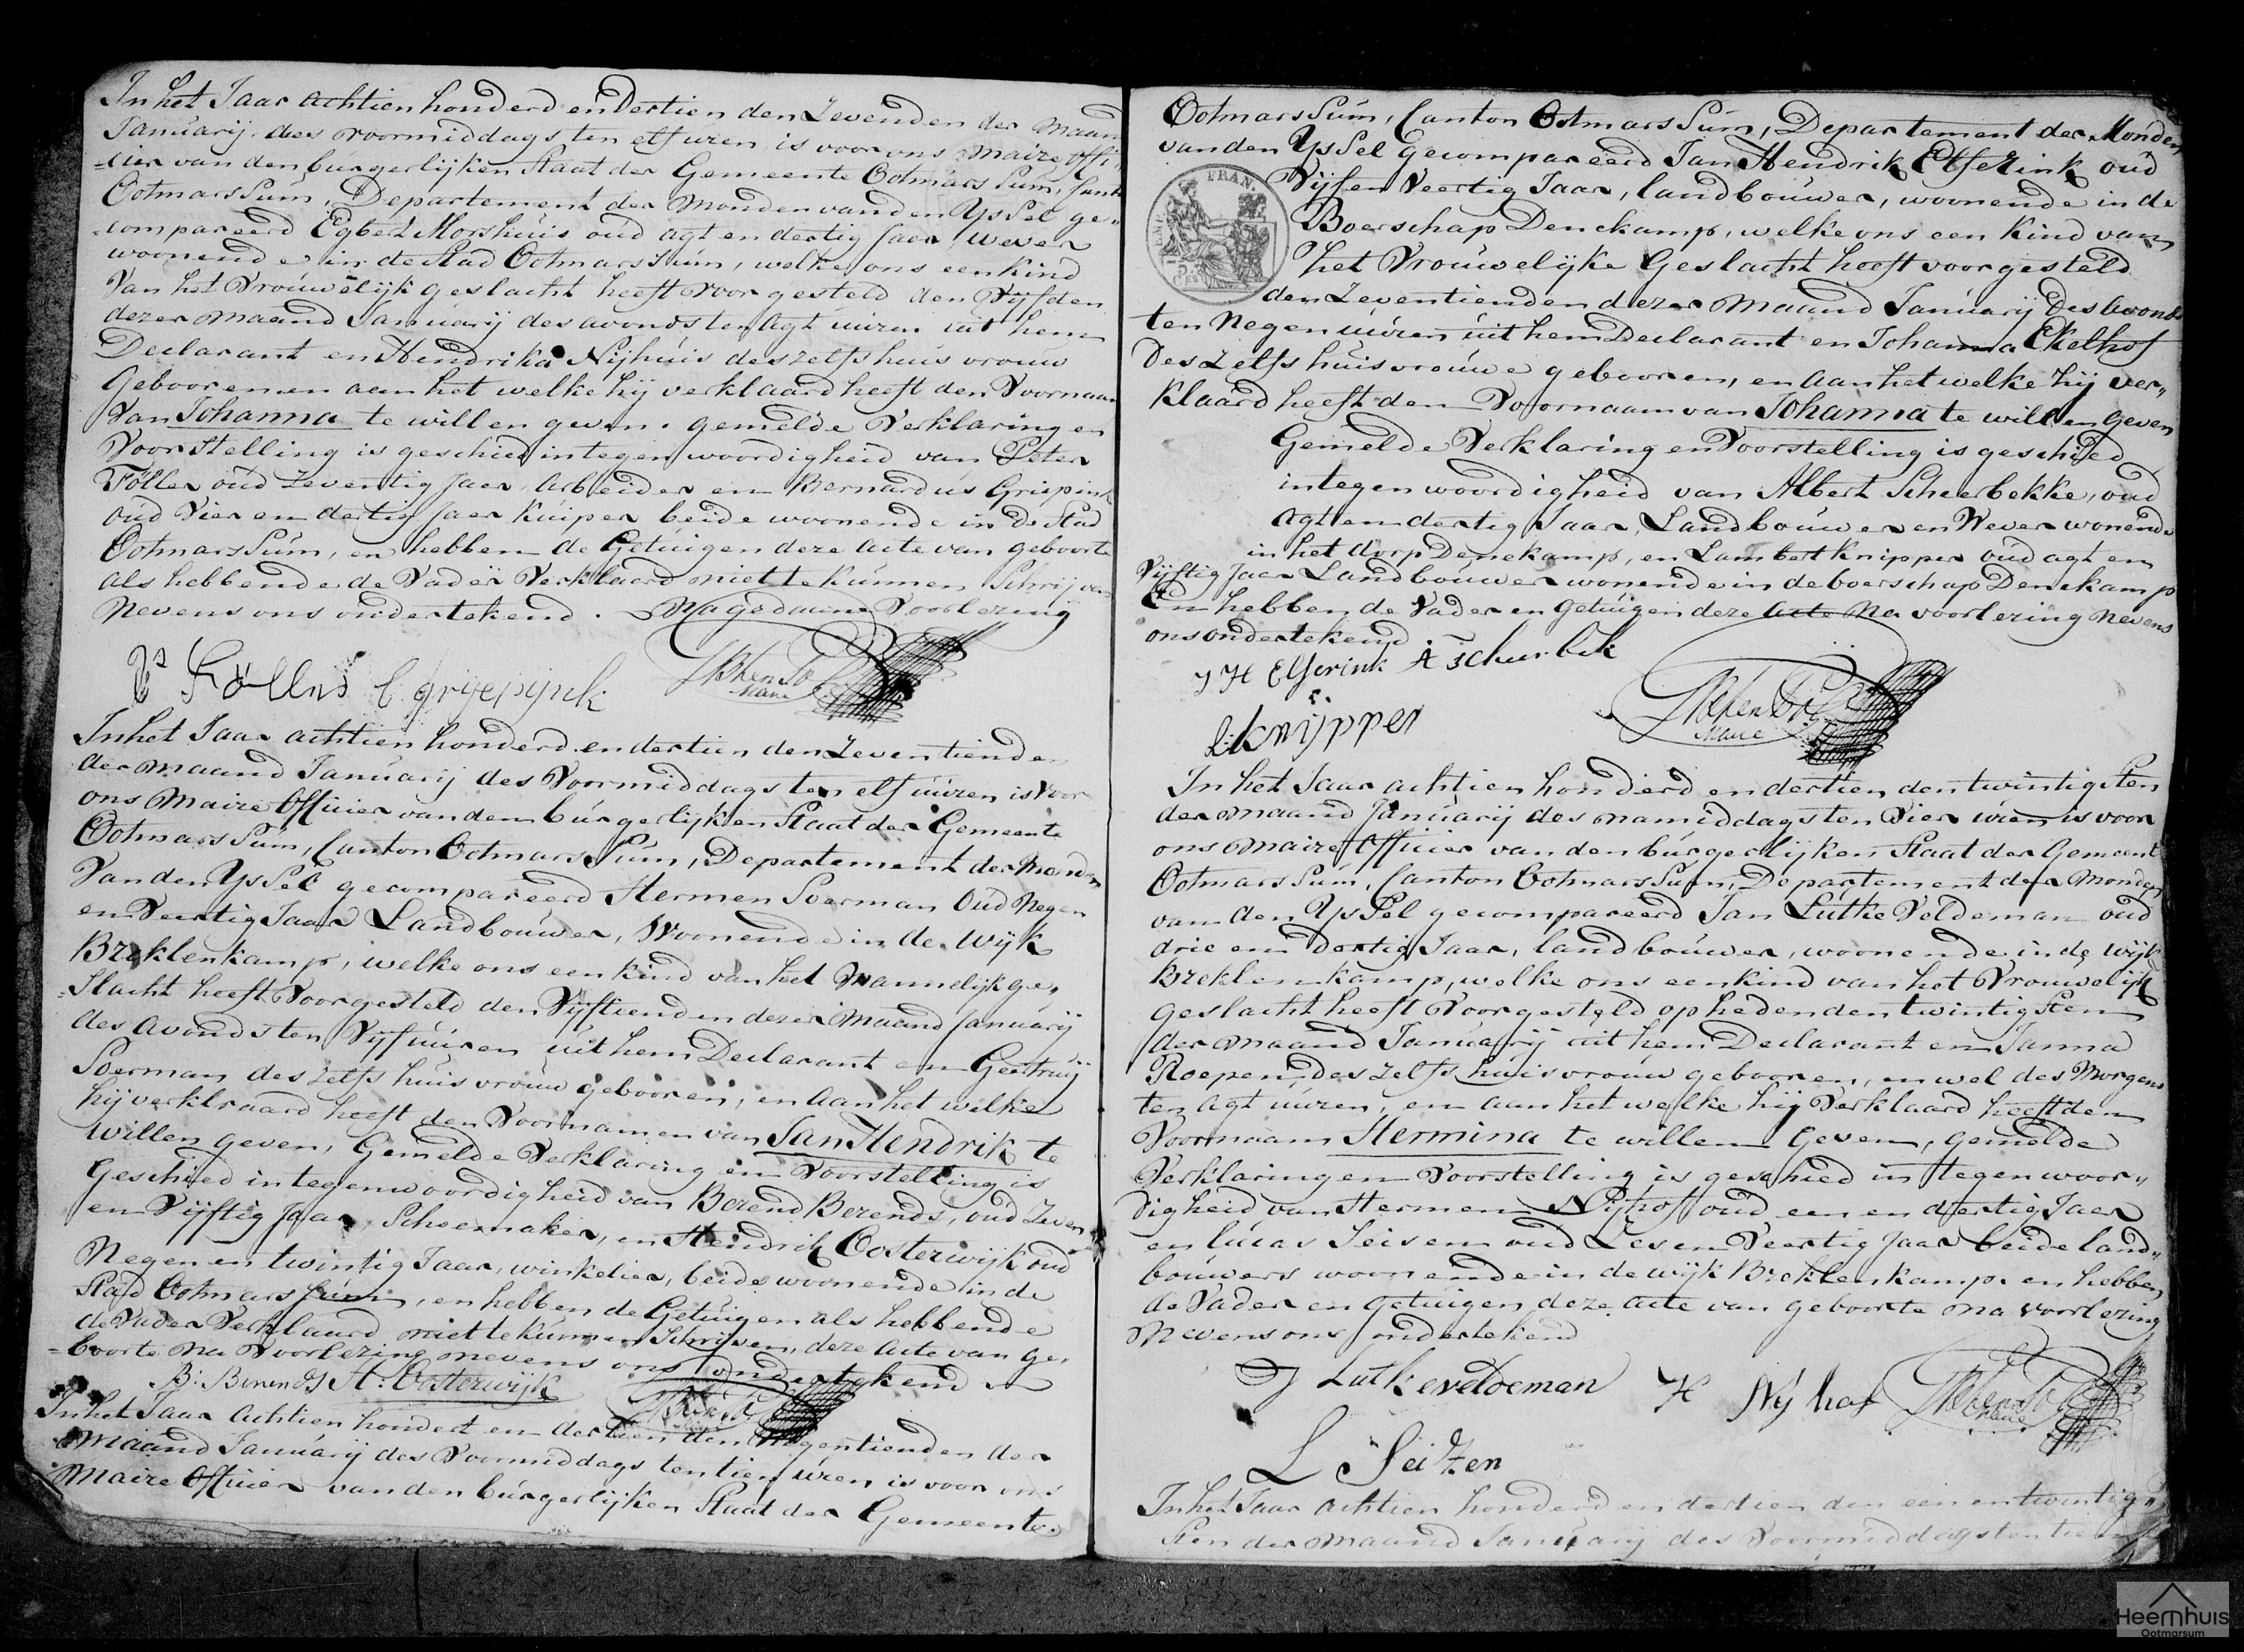 In het Jaar achtien honderd en dertien den Zevenden der Maand
Januarij des voormiddags ten elf uuren is voor ons Maire offi-
-cier van den burgerlijken Staat der Gemeente Ootmarssum, Canton
Ootmarssum, Departement der Monden van den Yssel ge-
-compareerd Egbert Morshuis oud agt en dertig Jaer, Wever
woonende in de Stad Ootmarssum, welke ons een kind
Van het Vrouwelijk geslacht heeft voor gesteld den Vijfden
dezer maand Januarij des avonds ten Agt uuren uit hem
Declarant en Hendrika Nijhuis deszelfs huis vrouw
Gebooren en aan het welke hij verklaard heeft den Voornaam
Van Johanna te willen geven. gemelde Verklaring en
Voorstelling is geschied in tegenwoordigheid van Peter
Föller oud Zeventig Jaer Arbeider en Bernardus Griepink
oud Vier en dertig Jaer Kuiper beide woonende in de Stad
Ootmarssum, en hebben de Getuigen deze Acte van geboorte
als hebbende de Vader Verklaard niet te kunnen Schrijven
Nevens ons ondertekend. Na gedaane Voorlezing
Föllns B grijepijnk
Maire
In het Jaar achtien honderd en dertien den Zeventienden
der maand Januarij des Voormiddags ten elf uuren is Voor
ons Maire Officier van den burgerlijken Staat der Gemeente
Ootmarssum, Canton Ootmarssum, Departement der Monden
Van den Yssel gecompareerd Hermen Soerman Oud Negen
en Veertig Jaar Landbouwer, Woonende in de Wijk
Breklenkamp, welke ons een kind van het Mannelijk ge-
-slacht heeft Voorgesteld den Vijftienden dezer Maand Januarij
des Avonds ten Vijf uuren uit hem Declarant en Geertruij
Soerman deszelfs huisvrouw gebooren, en aan het welke
hij verklaard heeft den Voornamen van Jan Hendrik te
willen geven, Gemelde Verklaring en Voorstelling is
Geschied in tegenwoordigheid van Berend Berends, oud Zeven
en Vijftig Jaar, Schoemaker, en Hendrik Oosterwijk oud
Negen en twintig Jaar, winkelier, beide woonende in de
Stad Ootmarssum, en hebben de Getuigen als hebbende
de Vader Verklaard niet te kunnen Schrijven, deze Acte van ge-
-boorte na Voorlezing nevens ons ondertekend
B: Berends H: Oosterwijk
In het Jaar Achtien honderd en dertien den Negentienden der
Maand Januarij des Voormiddags ten tien uren is voor ons
Maire Officier van den burgerlijken Staat der Gemeente
Ootmarssum, Canton Ootmarssum, Departement der Monden
van den Yssel Gecompareerd Jan Hendrik Elferink oud
Vijf en Veertig Jaar, landbouwer, woonende in de
Boerschap Denekamp, welke ons een kind van
het Vrouwelijke Geslacht heeft voorgesteld
den Zeventienden dezer Maand Januarij Des Avonds
ten Negen uuren uit hem Declarant en Johanna Ekelhof
Deszelfs huisvrouwe gebooren, en aan het welke hij ver-
klaard heeft den Voornaam van Johanna te willen geven
Gemelde Verklaring en Voorstelling is geschied
in tegenwoordigheid van Albert Scheerbekke, oud
Agt en dertig Jaar, Landbouwer en Wever wonende
in het dorp Denekamp, en Lambert Knipper oud agt en
Vijftig Jaer Landbouwer wonende in de boerschap Denekamp
En hebben de Vader en Getuigen deze Acte Na voorlezing Nevens
ons ondertekend
EMP. FRAN.
J H Elferink A Scheerbek
L: Knijpper
Maire
In het Jaar achtien honderd en dertien den twintigsten
der maand Januarij des namiddags ten Vier uren is voor
ons Maire Officier van den burgerlijken Staat der Gemeente
Ootmarssum, Canton Ootmarssum, Departement der Monden
van den Yssel gecompareerd Jan Lutke Veldeman oud
drie en Dertig Jaar, landbouwer, woonende in de wijk
Breklenkamp, welke ons een kind van het Vrouwelijk
geslacht heeft Voorgesteld op heden den twintigsten
der maand Januarij uit hem Declarant en Janna
Roepen deszelfs huisvrouw gebooren, en wel des Morgens
ten Agt uuren, en aan het welke hij Verklaard heeft den
Voornaam Hermina te willen Geven, gemelde
Verklaring en Voorstelling is geschied in tegenwoor-
digheid van Hermen Nijhof oud een en dertig Jaer
en Lucas Seisen oud Zes en Veertig Jaar beide land-
bouwers woonende in de wijk Breklenkamp. en hebben
de Vader en getuigen deze acte van geboorte na voorlezing
Nevens ons ondertekend
J Lutkeveldeman H Nyhof
Maire
L Seitzen
In het Jaar achtien honderd en dertien den een en twintig-
sten der maand Januarij des Voormiddags ten tien
Heemhuis
Ootmarsum